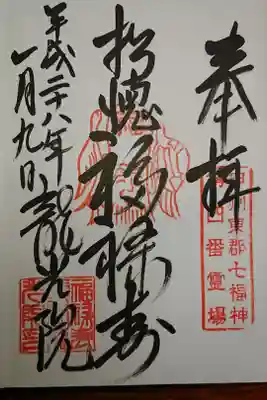 奉拝
甲州東郡七福神
番霊場
招徳福禄寿
平成二十八年
一月九日
龍光院